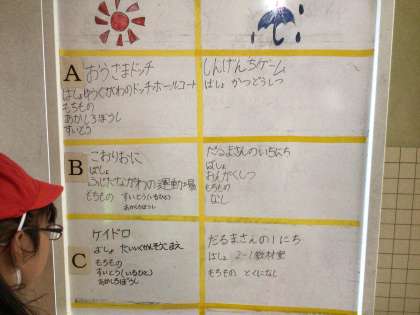 A
おうさまドッチ
ばしょゆうぐがわのドッチボールコート
もちもの
あかしろぼうし
すいとう
しんげんちゲーム
ばしょ かつどうしつ
B
こおりおに
ばしょ
ふじたながわの運動場
もちもの すいとう(いるひと)
あかしろぼうし
だるまさんのいちにち
ばしょ
おんがくしつ
もちもの
なし
C
ケイドロ
ばしょ たいいくかんそうこまえ
もちもの
すいとう(いるひと)
あかしろぼうし
だるまさんの1にち
ばしょ 2-1教材室
もちもの とくになし